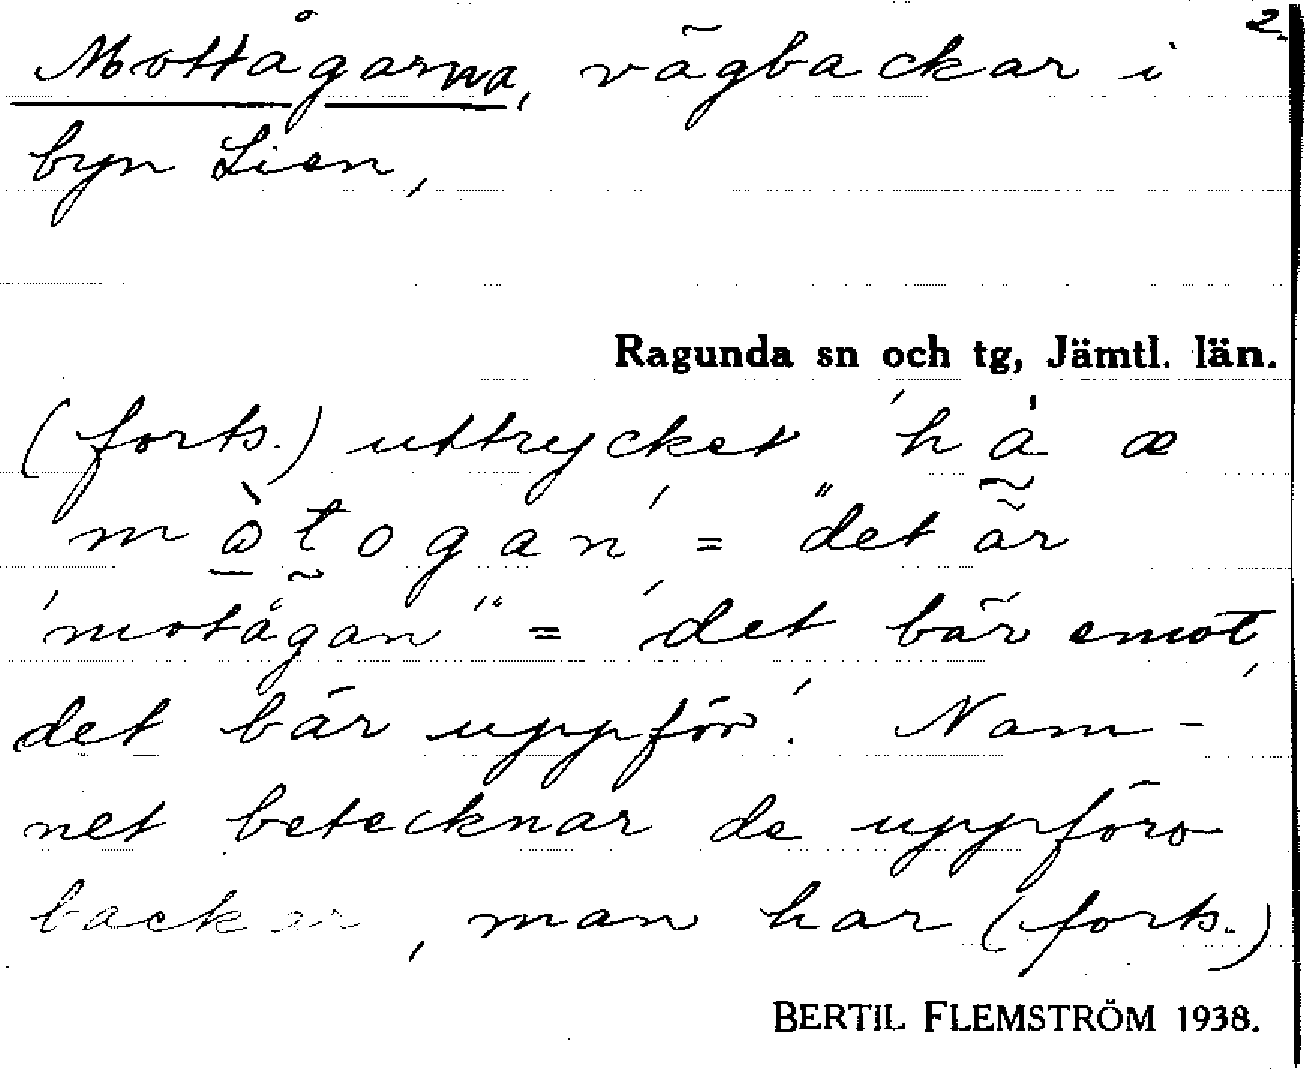 2.
Mottågarna, vägbackar i
byn Lien,
Ragunda sn och tg, Jämtl. län.
(forts.) uttrycket 'hà æ
màtogan' = "det är
'motågan'" = 'det bär emot,
det bär uppför'. Nam-
net betecknar de uppföro
backar, man har (forts.)
BERTIL FLEMSTRÖM 1938.